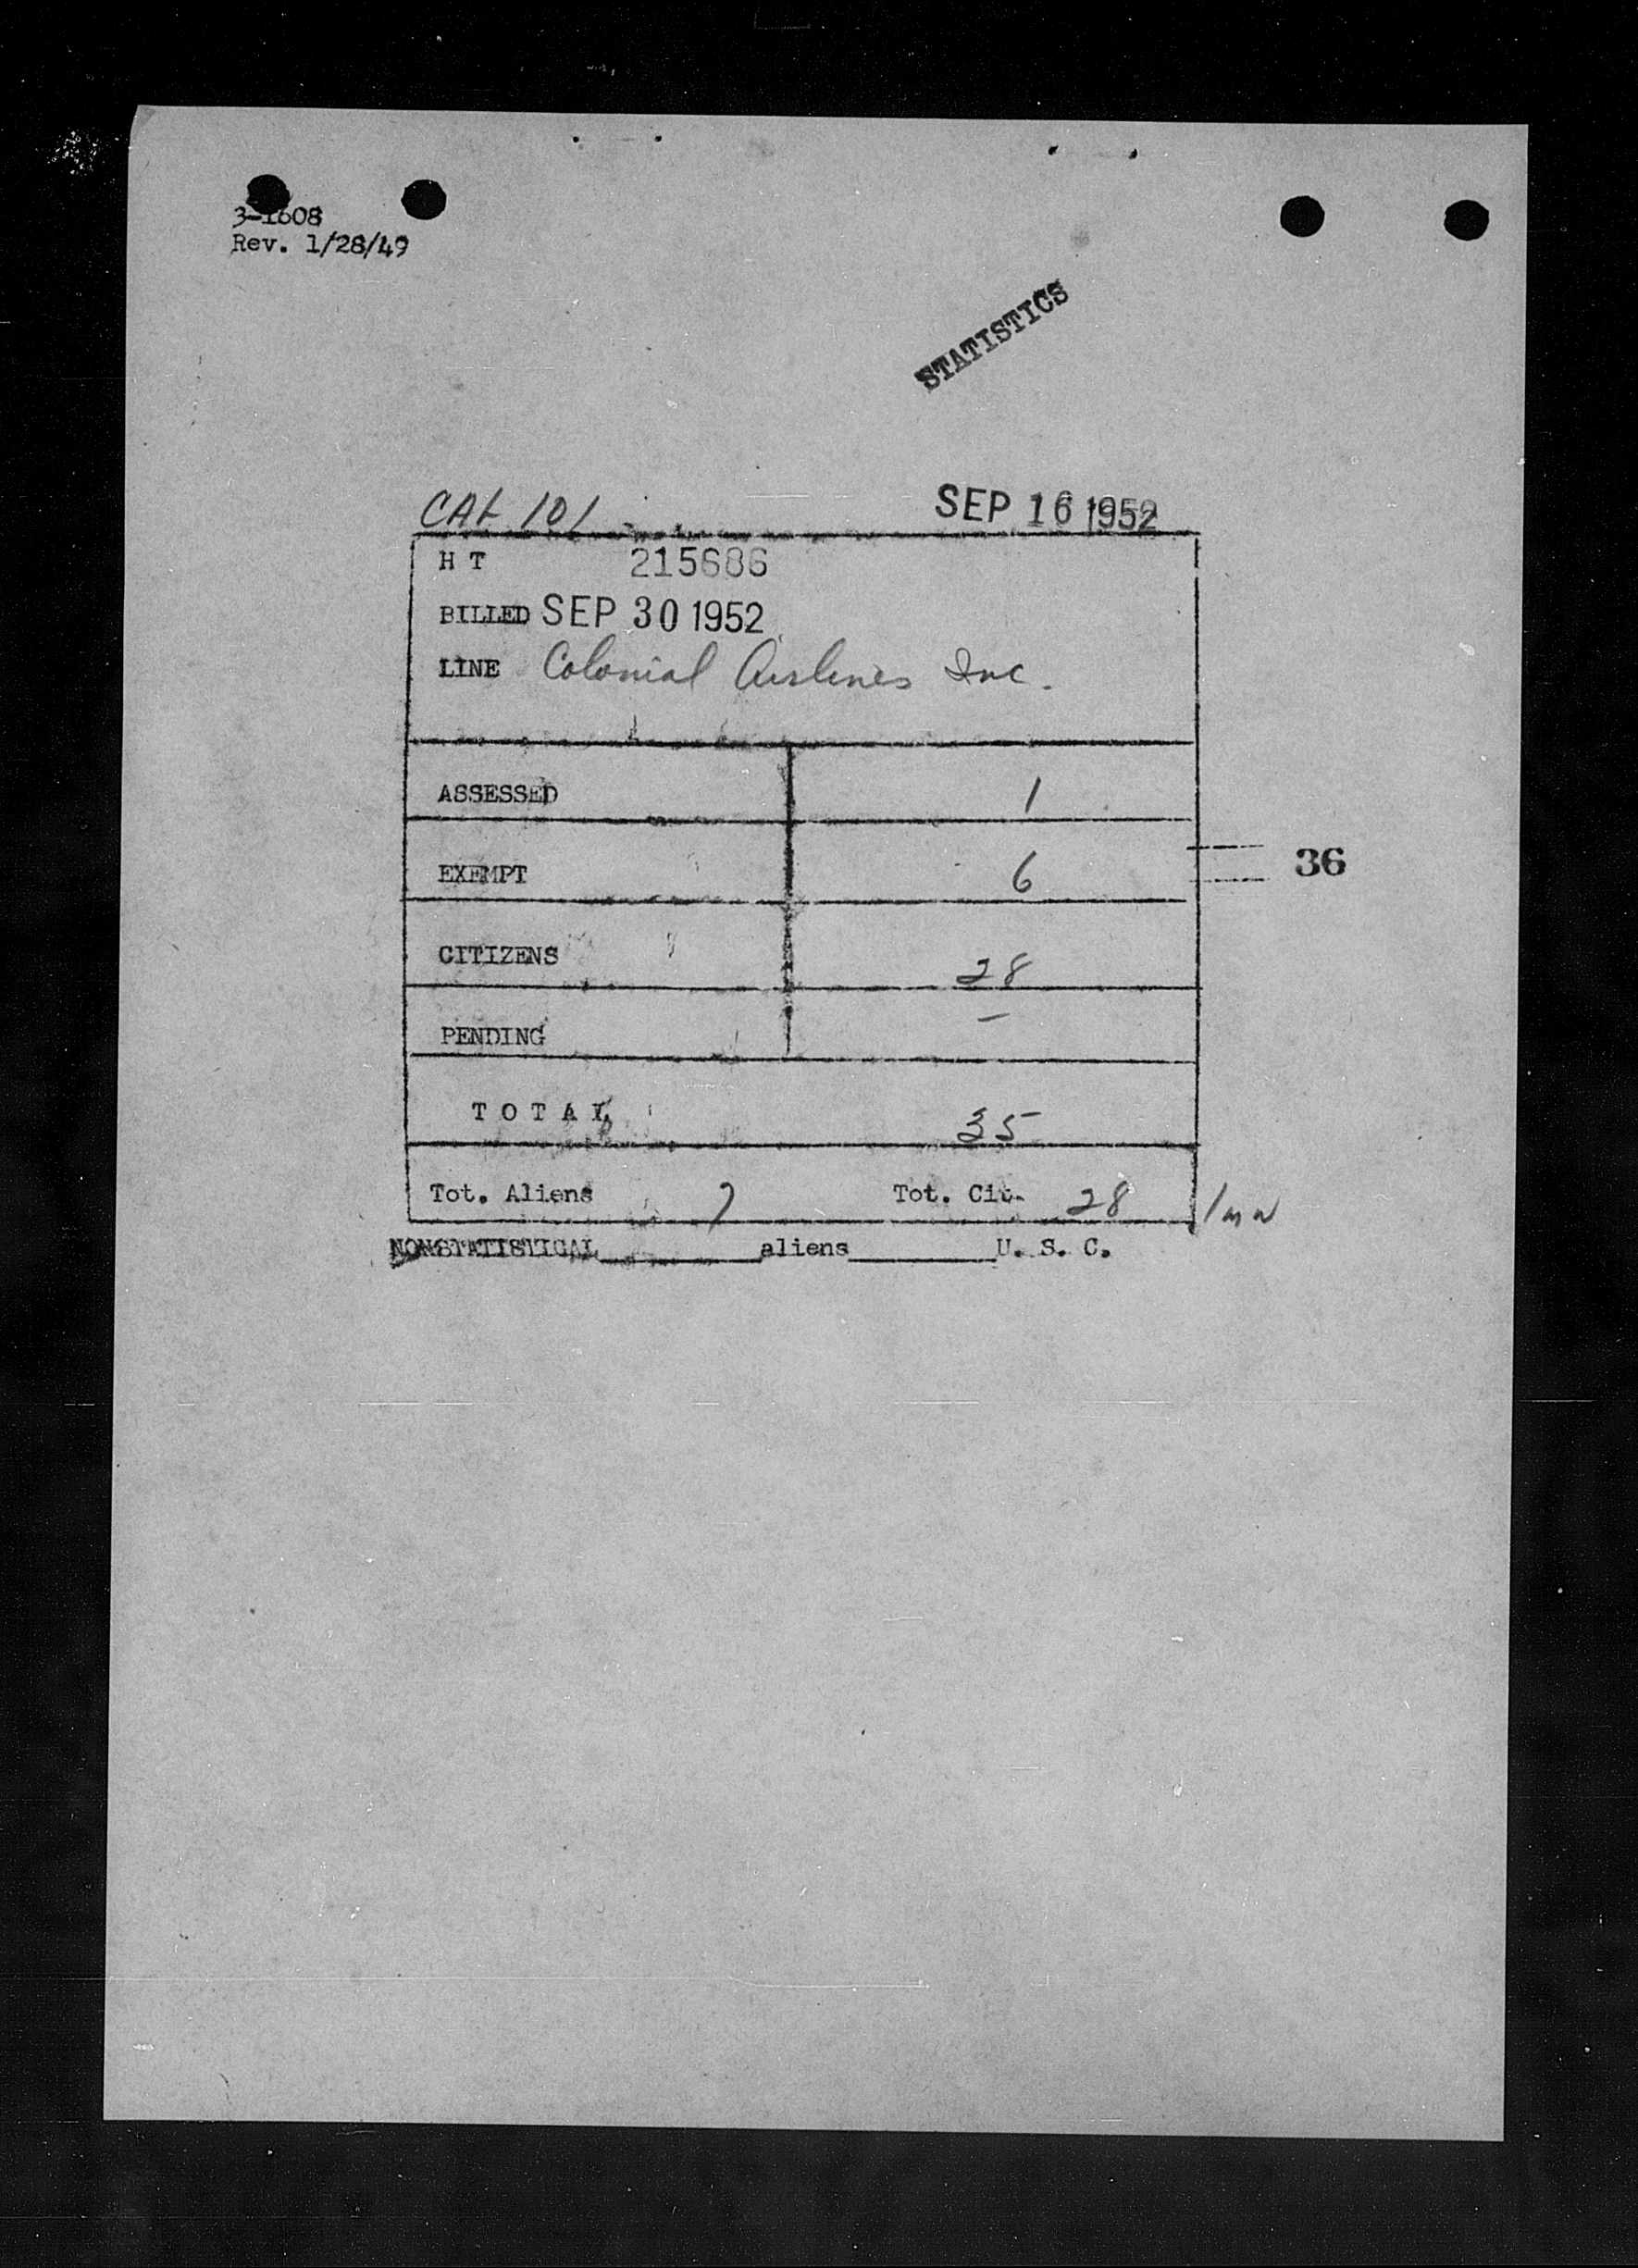 3-1608
Rev. 1/28/49
STATISTICS
CAL 101 SEP 16 1952
H T 215686
BILLED SEP 30 1952
LINE Colonial Airlines Inc.
ASSESSED 1
EXEMPT 6
36
CITIZENS 28
PENDING –
TOTAL 35
Tot. Aliens 7 Tot. Cit. 28
NONSTATISTICAL aliens U. S. C.